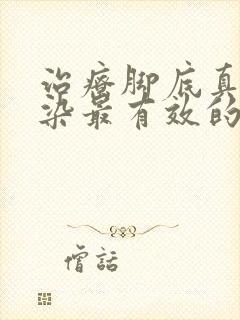 治疗脚底真
染最有效的
僧話